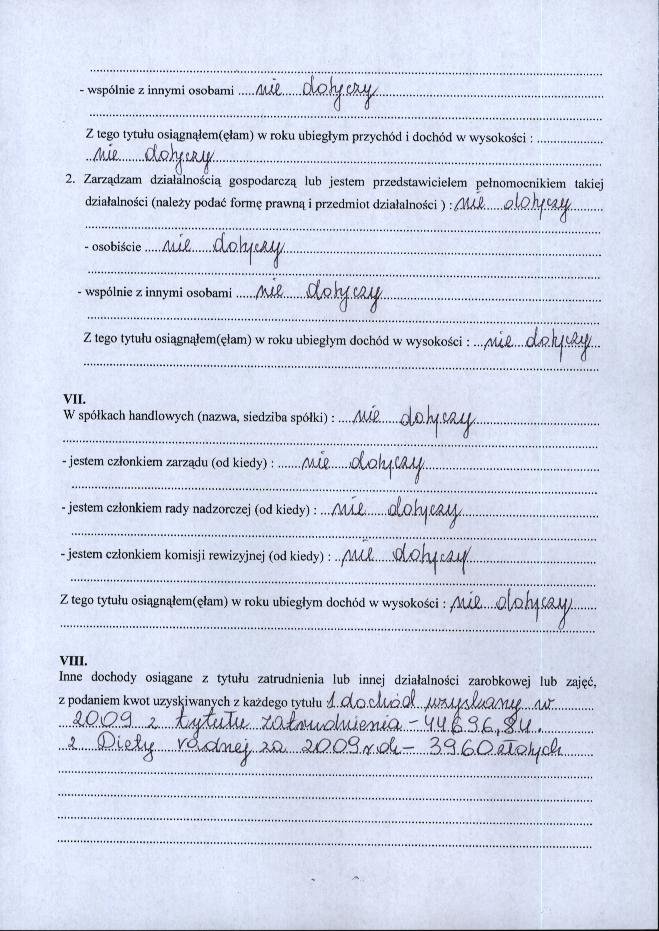 - wspólnie z innymi osobami ..... nie dotyczy
Z tego tytułu osiągnąłem(ęłam) w roku ubiegłym przychód i dochód w wysokości :
nie dotyczy
2. Zarządzam działalnością gospodarczą lub jestem przedstawicielem pełnomocnikiem takiej
działalności (należy podać formę prawną i przedmiot działalności ) : nie dotyczy
- osobiście ..... nie dotyczy
- wspólnie z innymi osobami ..... nie dotyczy
Z tego tytułu osiągnąłem(ęłam) w roku ubiegłym dochód w wysokości : ... nie dotyczy
VII.
W spółkach handlowych (nazwa, siedziba spółki) : .... nie dotyczy
- jestem członkiem zarządu (od kiedy) : ....... nie dotyczy
- jestem członkiem rady nadzorczej (od kiedy) : ... nie dotyczy
- jestem członkiem komisji rewizyjnej (od kiedy) : .. nie dotyczy
Z tego tytułu osiągnąłem(ęłam) w roku ubiegłym dochód w wysokości : nie dotyczy
VIII.
Inne dochody osiągane z tytułu zatrudnienia lub innej działalności zarobkowej lub zajęć,
z podaniem kwot uzyskiwanych z każdego tytułu 1. dochód uzyskany w
2009 z tytułu zatrudnienia - 44696,84.
2. Diety radnej za 2009 rok - 3960 złotych